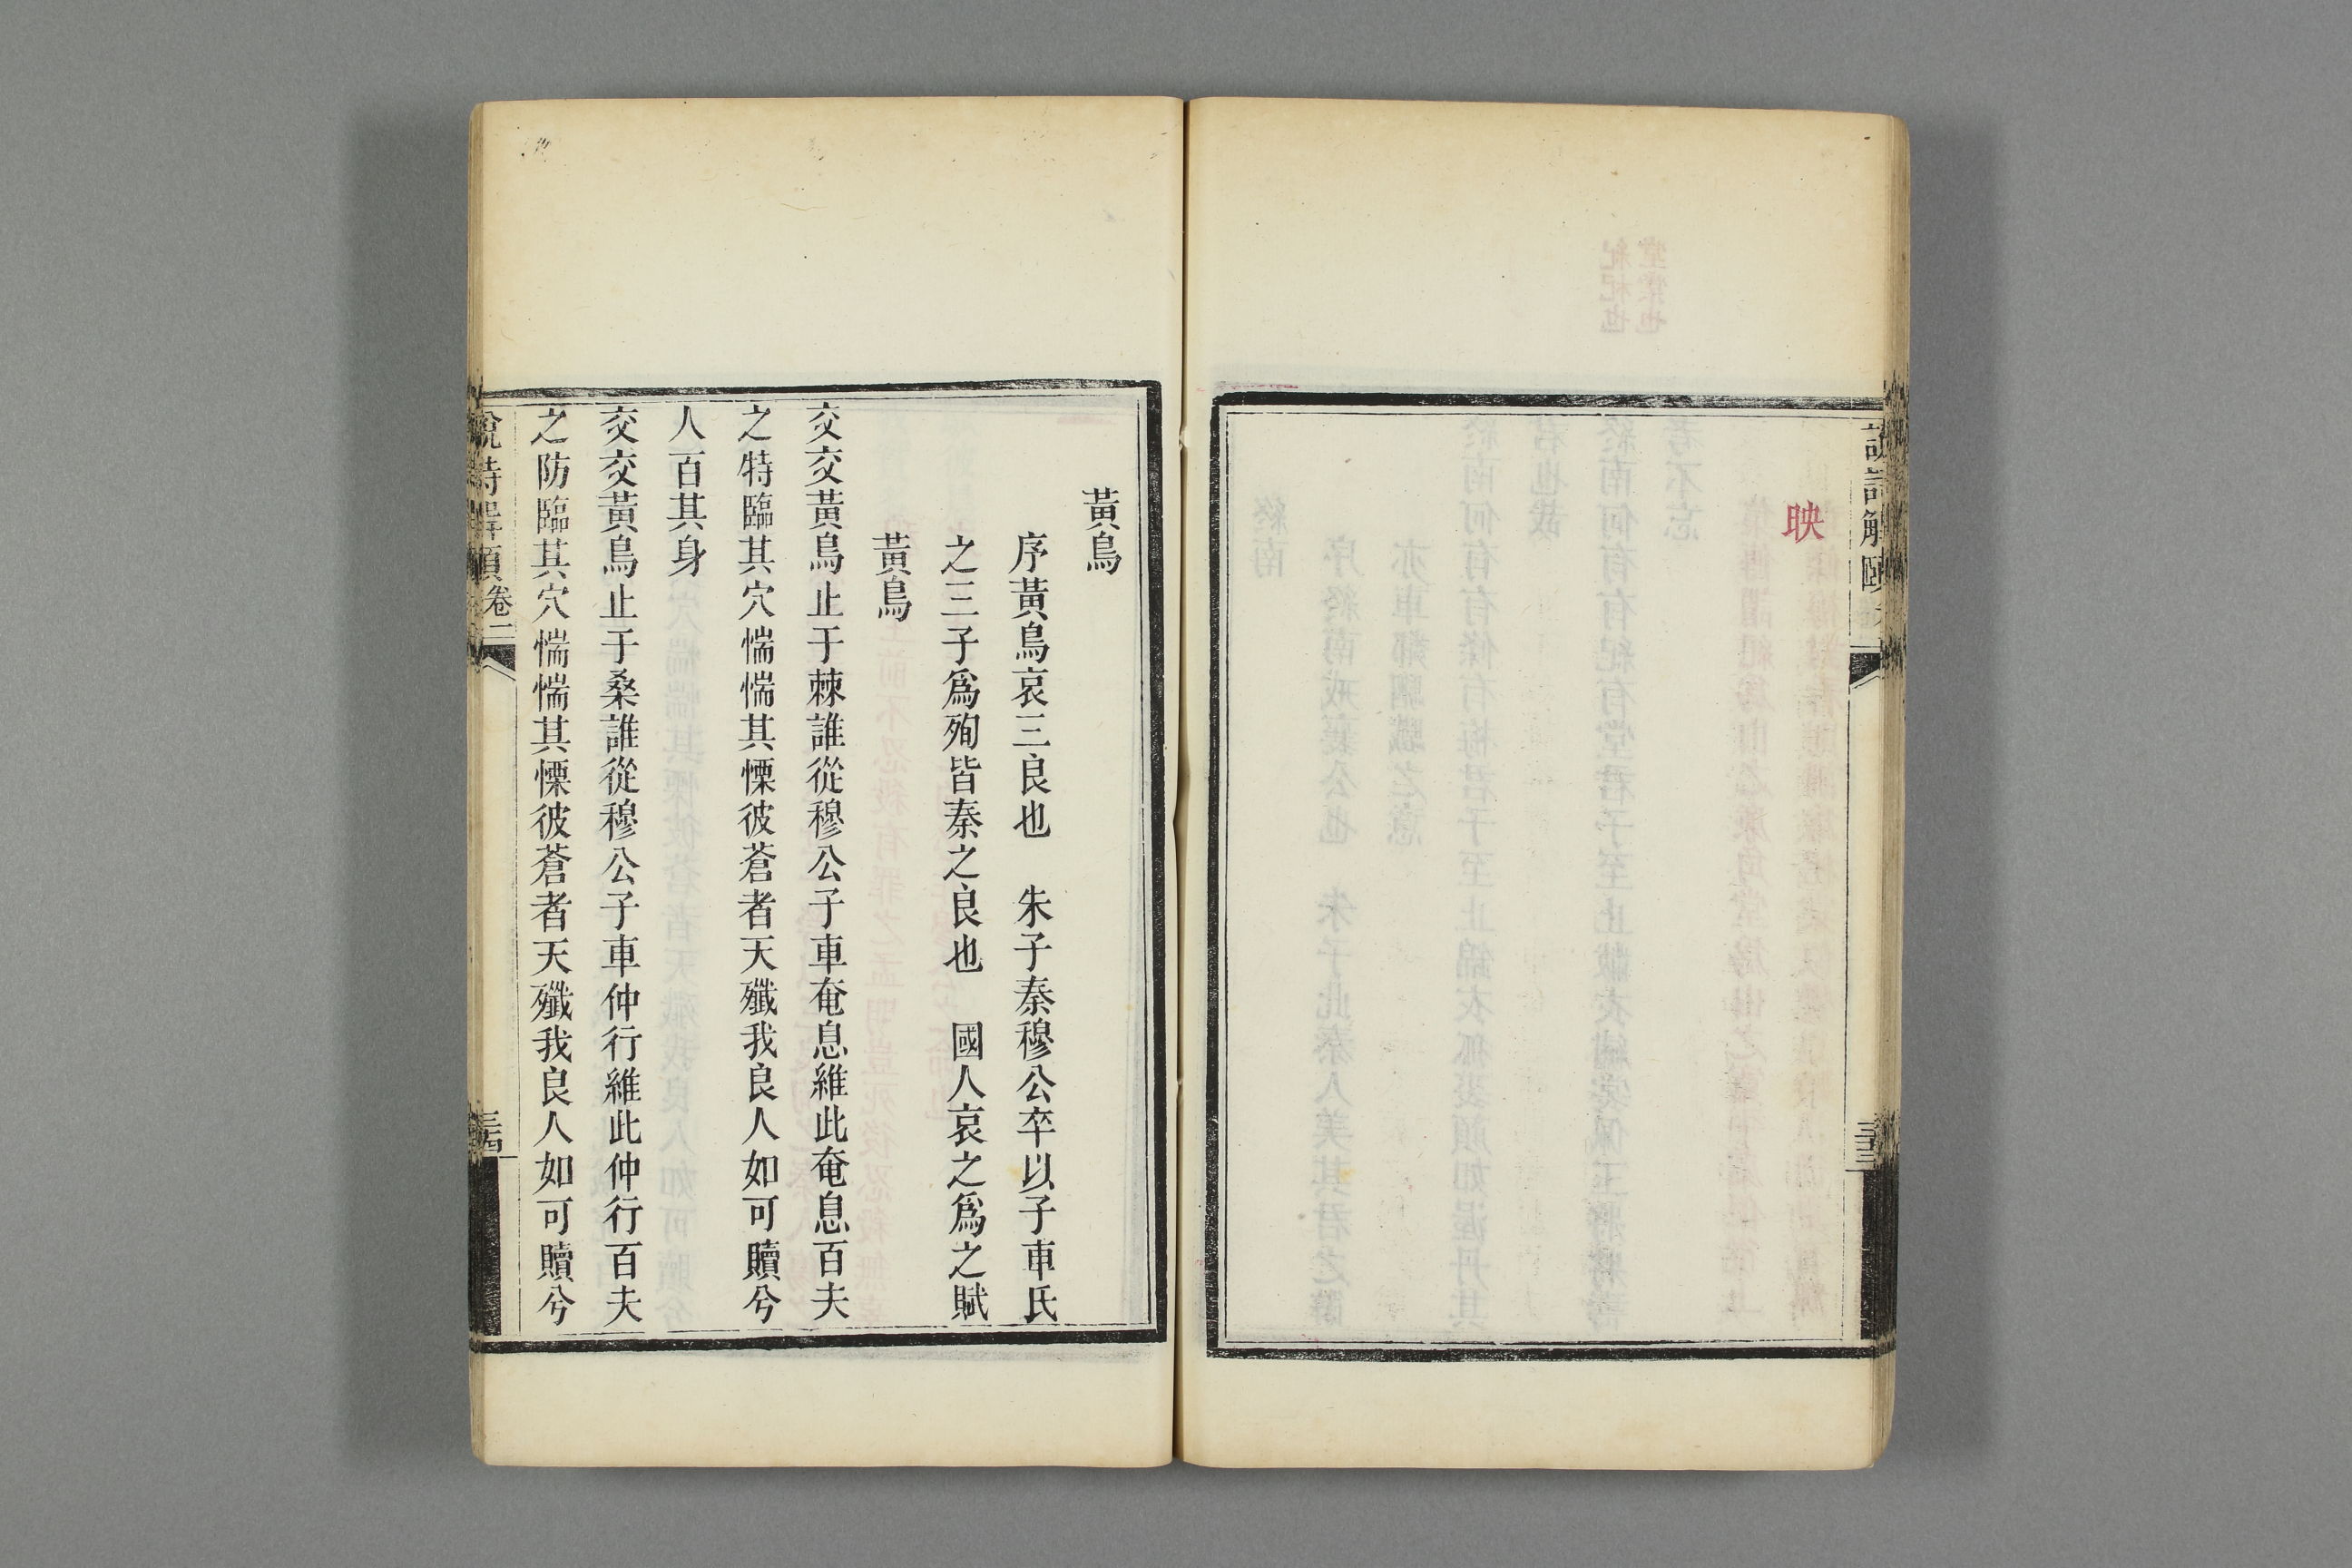 說詩解頤
三三
映
黃鳥
序黃鳥哀三良也　朱子秦穆公卒以子車氏
之三子爲殉皆秦之良也　國人哀之爲之賦
黃鳥
交交黃鳥止于棘誰從穆公子車奄息維此奄息百夫
之特臨其穴惴惴其慄彼蒼者天殲我良人如可贖兮
人百其身
交交黃鳥止于桑誰從穆公子車仲行維此仲行百夫
之防臨其穴惴惴其慄彼蒼者天殲我良人如可贖兮
說詩解頤卷二
三四